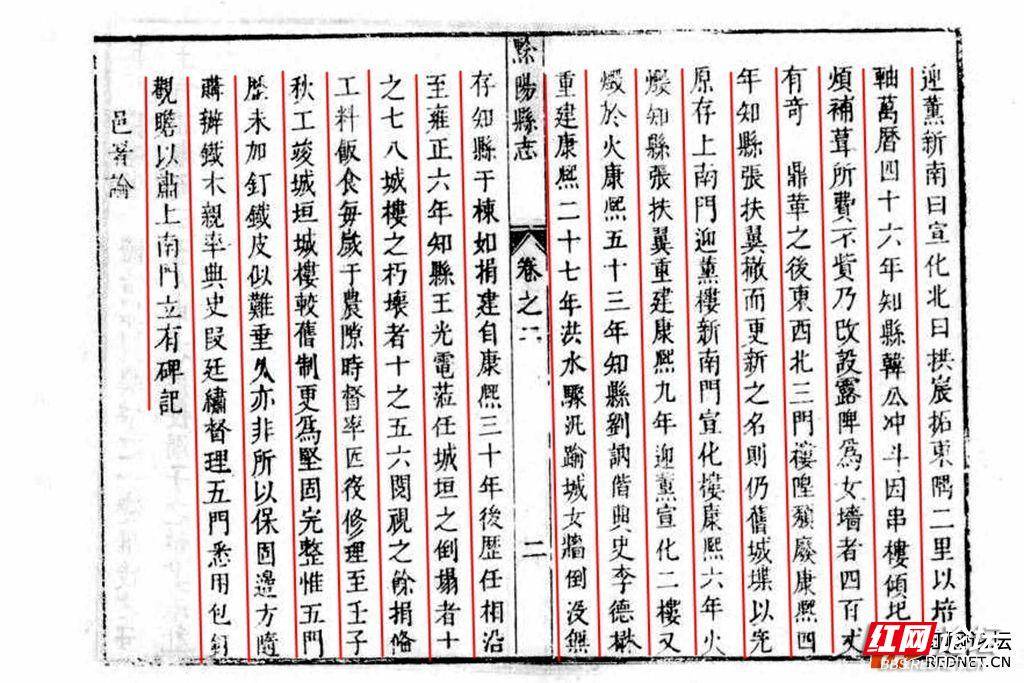 迎薰新南曰宣化北曰拱宸拓東隅二里以培
軸萬曆四十六年知縣韓公冲斗因串樓傾圮
煩補葺所費不貲乃改設露陴為女墻者四百丈
有奇　鼎革之後東西北三門樓隍頹廢康熙四
年知縣張扶翼撤而更新之名則仍舊城堞以完
原存上南門迎薰樓新南門宣化樓康熙六年火
燬知縣張扶翼重建康熙九年迎薰宣化二樓又
燬於火康熙五十三年知縣劉訥偕典史李德懋
重建康熙二十七年洪水驟汎踰城女牆倒沒無
黔陽縣志
卷之二
二
存知縣于棟如捐建自康熙三十年後歷任相沿
至雍正六年知縣王光電蒞任城垣之倒塌者十
之七八城樓之朽壞者十之五六閱視之餘捐脩
工料飯食每歲于農隙時督率匠役修理至壬子
秋工竣城垣城樓較舊制更爲堅固完整惟五門
歷未加釘鐵皮似難垂久亦非所以保固邉方隨
購辦鐵木親率典史段廷繡督理五門悉用包釘
觀瞻以肅上南門立有碑記
邑署論
红网
REDNET.CN